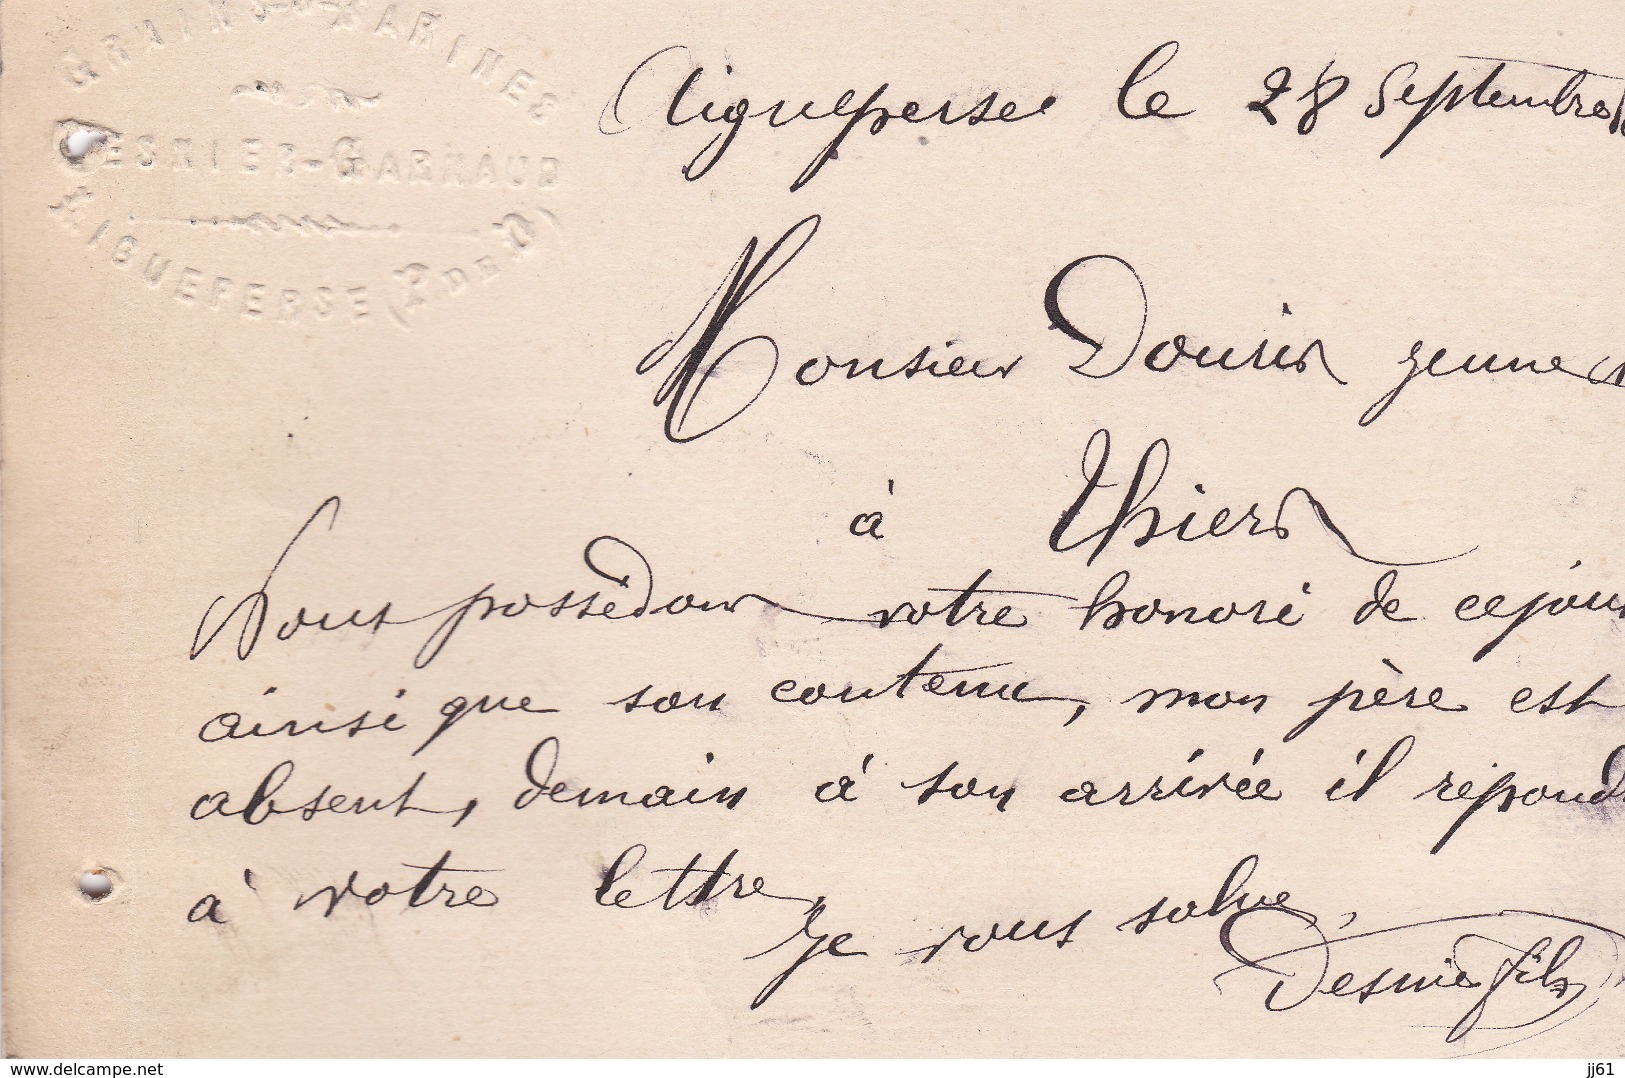 GRAINS & FARINES
DESNIER-GARNAUD
AIGUEPERSE (P. DE D.)
Aigueperse le 28 Septembre
Monsieur Douris jeune
à Thiers
Nous possédons votre honoré de ce jour
ainsi que son contenu, mon père est
absent, demain à son arrivée il répond
à votre lettre,
Je vous salue,
Desnier fils
www.delcampe.net
jj61